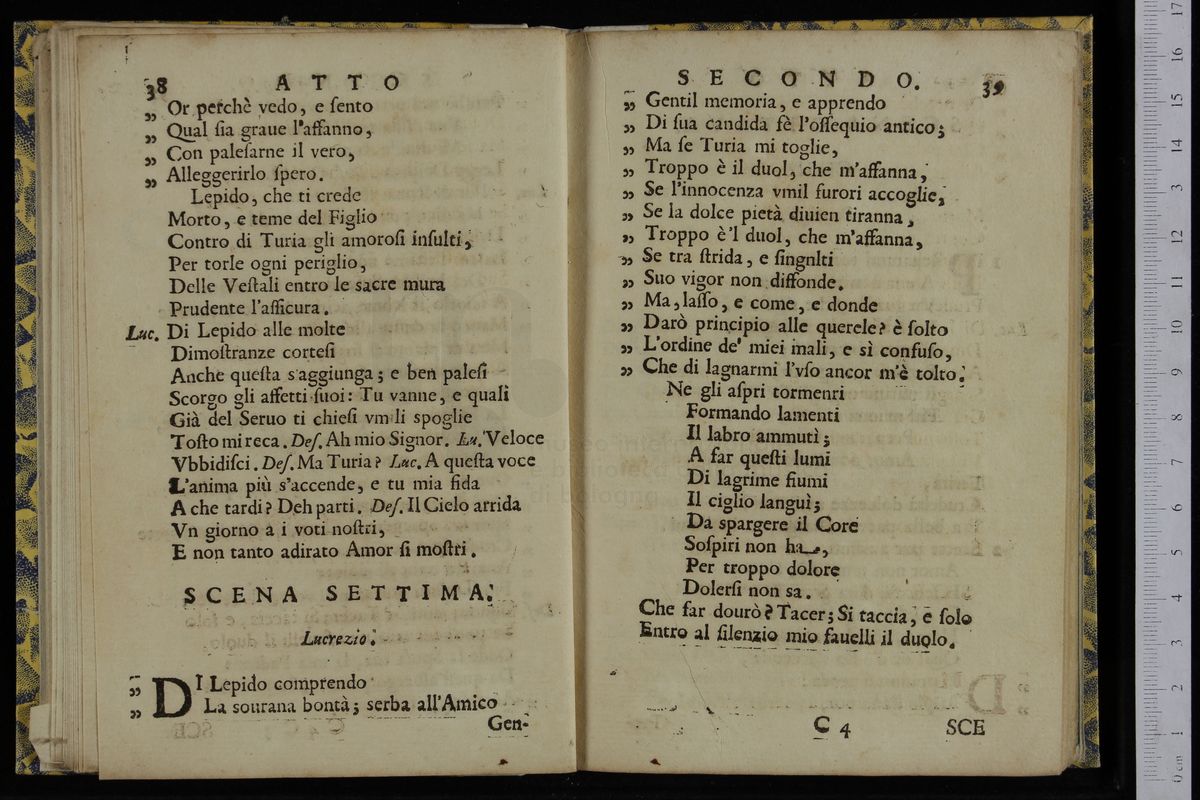 38 ATTO
„ Or perchè vedo, e ſento
„ Qual ſia graue l'affanno,
„ Con paleſarne il vero,
„ Alleggerirlo ſpero.
Lepido, che ti crede
Morto, e teme del Figlio
Contro di Turia gli amoroſi inſulti,
Per torle ogni periglio,
Delle Veſtali entro le sacre mura
Prudente l'aſſicura.
Luc. Di Lepido alle molte
Dimoſtranze corteſi
Anche queſta s'aggiunga; e ben paleſi
Scorgo gli affetti ſuoi: Tu vanne, e quali
Già del Seruo ti chieſi vmili ſpoglie
Toſto mi reca. Deſ. Ah mio Signor. Lu. Veloce
Vbbidiſci. Deſ. Ma Turia? Luc. A queſta voce
L'anima più s'accende, e tu mia fida
A che tardi? Deh parti. Deſ. Il Cielo arrida
Vn giorno a i voti noſtri,
E non tanto adirato Amor ſi moſtri.
SCENA SETTIMA.
Lucrezio.
„ DI Lepido comprendo
„ La sourana bontà; serba all'Amico
Gen-
SECONDO. 39
„ Gentil memoria, e apprendo
„ Di ſua candida fè l'oſſequio antico;
„ Ma ſe Turia mi toglie,
„ Troppo è il duol, che m'affanna,
„ Se l'innocenza vmil furori accoglie,
„ Se la dolce pietà diuien tiranna,
„ Troppo è'l duol, che m'affanna,
„ Se tra ſtrida, e ſingnlti
„ Suo vigor non diffonde.
„ Ma, laſſo, e come, e donde
„ Darò principio alle querele? è ſolto
„ L'ordine de' miei mali, e sì confuſo,
„ Che di lagnarmi l'vſo ancor m'è tolto.
Ne gli aſpri tormenri
Formando lamenti
Il labro ammutì;
A far queſti lumi
Di lagrime fiumi
Il ciglio languì;
Da spargere il Core
Soſpiri non ha,
Per troppo dolore
Dolerſi non sa.
Che far dourò? Tacer; Si taccia, e ſolo
Entro al ſilenzio mio fauelli il duolo.
C 4 SCE